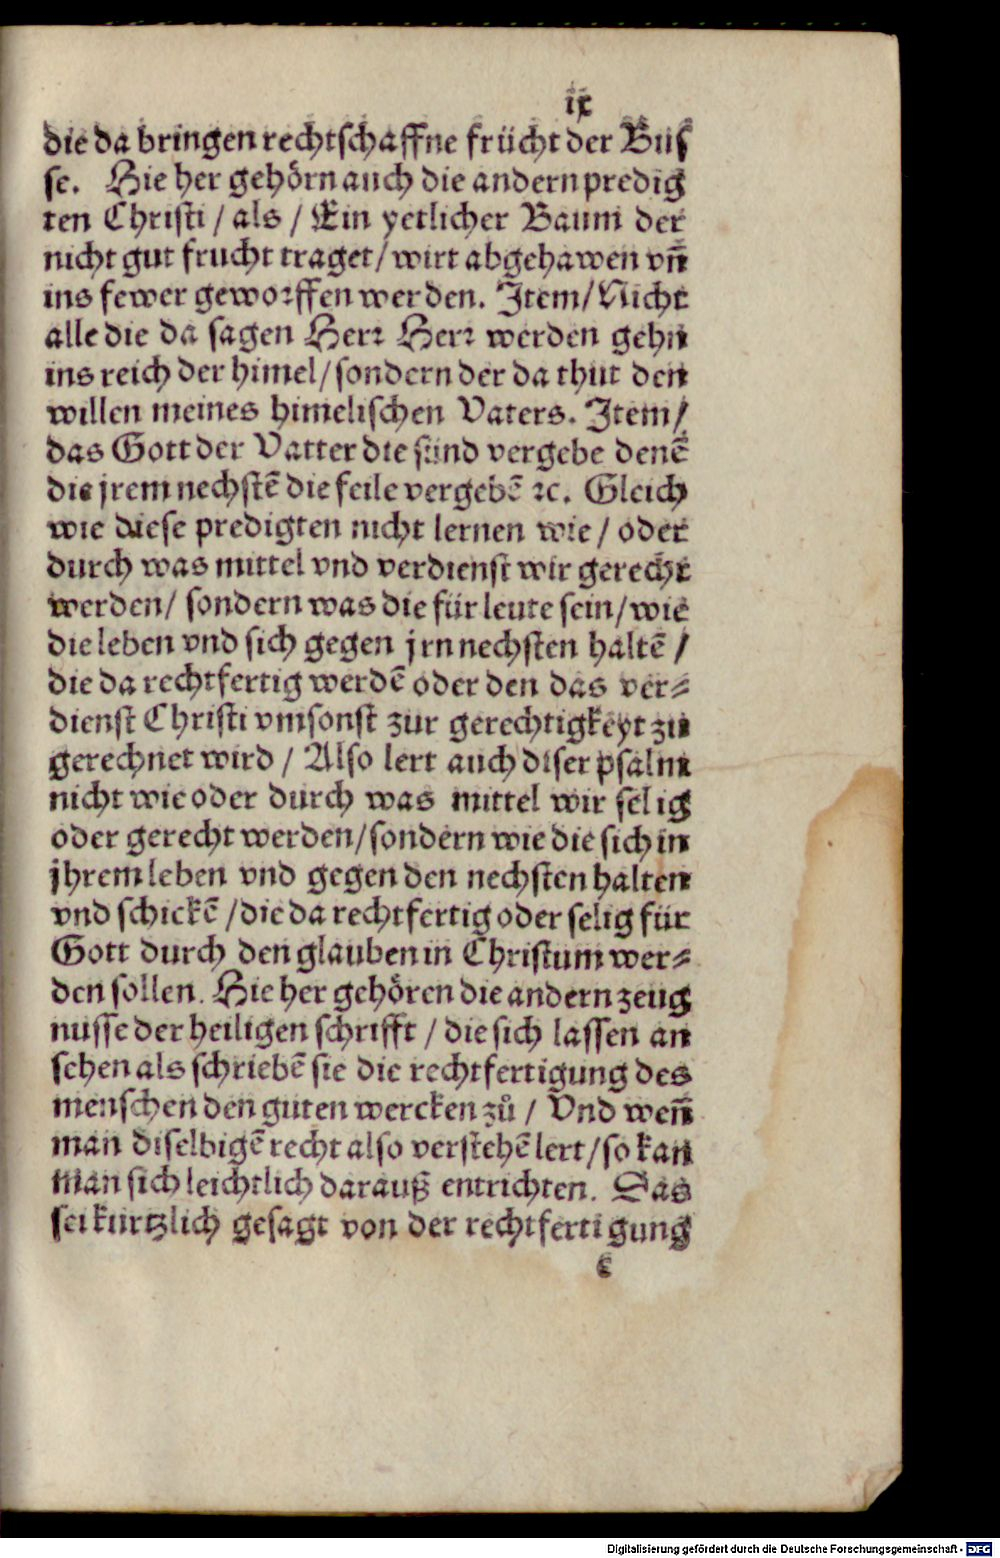 ix
die da bringen rechtschaffne frücht der Bus
se. Hie her gehörn auch die andern predig
ten Christi / als / Ein yetlicher Baum der
nicht gut frucht traget / wirt abgehawen vñ
ins fewer geworffen werden. Item / Nicht
alle die da sagen Herr Herr werden gehn
ins reich der himel / sondern der da thut den
willen meines himelischen Vaters. Item /
das Gott der Vatter die sünd vergebe denē
die jrem nechstē die feile vergebē ꝛc. Gleich
wie diese predigten nicht lernen wie / oder
durch was mittel vnd verdienst wir gerecht
werden / sondern was die für leute sein / wie
die leben vnd sich gegen jrn nechsten haltē /
die da rechtfertig werdē oder den das ver⸗
dienst Christi vmsonst zur gerechtigkeyt zu
gerechnet wird / Also lert auch diser psalm
nicht wie oder durch was mittel wir selig
oder gerecht werden / sondern wie die sich in
jhrem leben vnd gegen den nechsten halten
vnd schickē / die da rechtfertig oder selig für
Gott durch den glauben in Christum wer⸗
den sollen. Hie her gehören die andern zeug
nusse der heiligen schrifft / die sich lassen an
sehen als schriebē sie die rechtfertigung des
menschen den guten wercken zů / Vnd weñ
man diselbigē recht also verstehē lert / so kan
man sich leichtlich darauß entrichten. Das
sei kurtzlich gesagt von der rechtfertigung
c
Digitalisierung gefördert durch die Deutsche Forschungsgemeinschaft - DFG